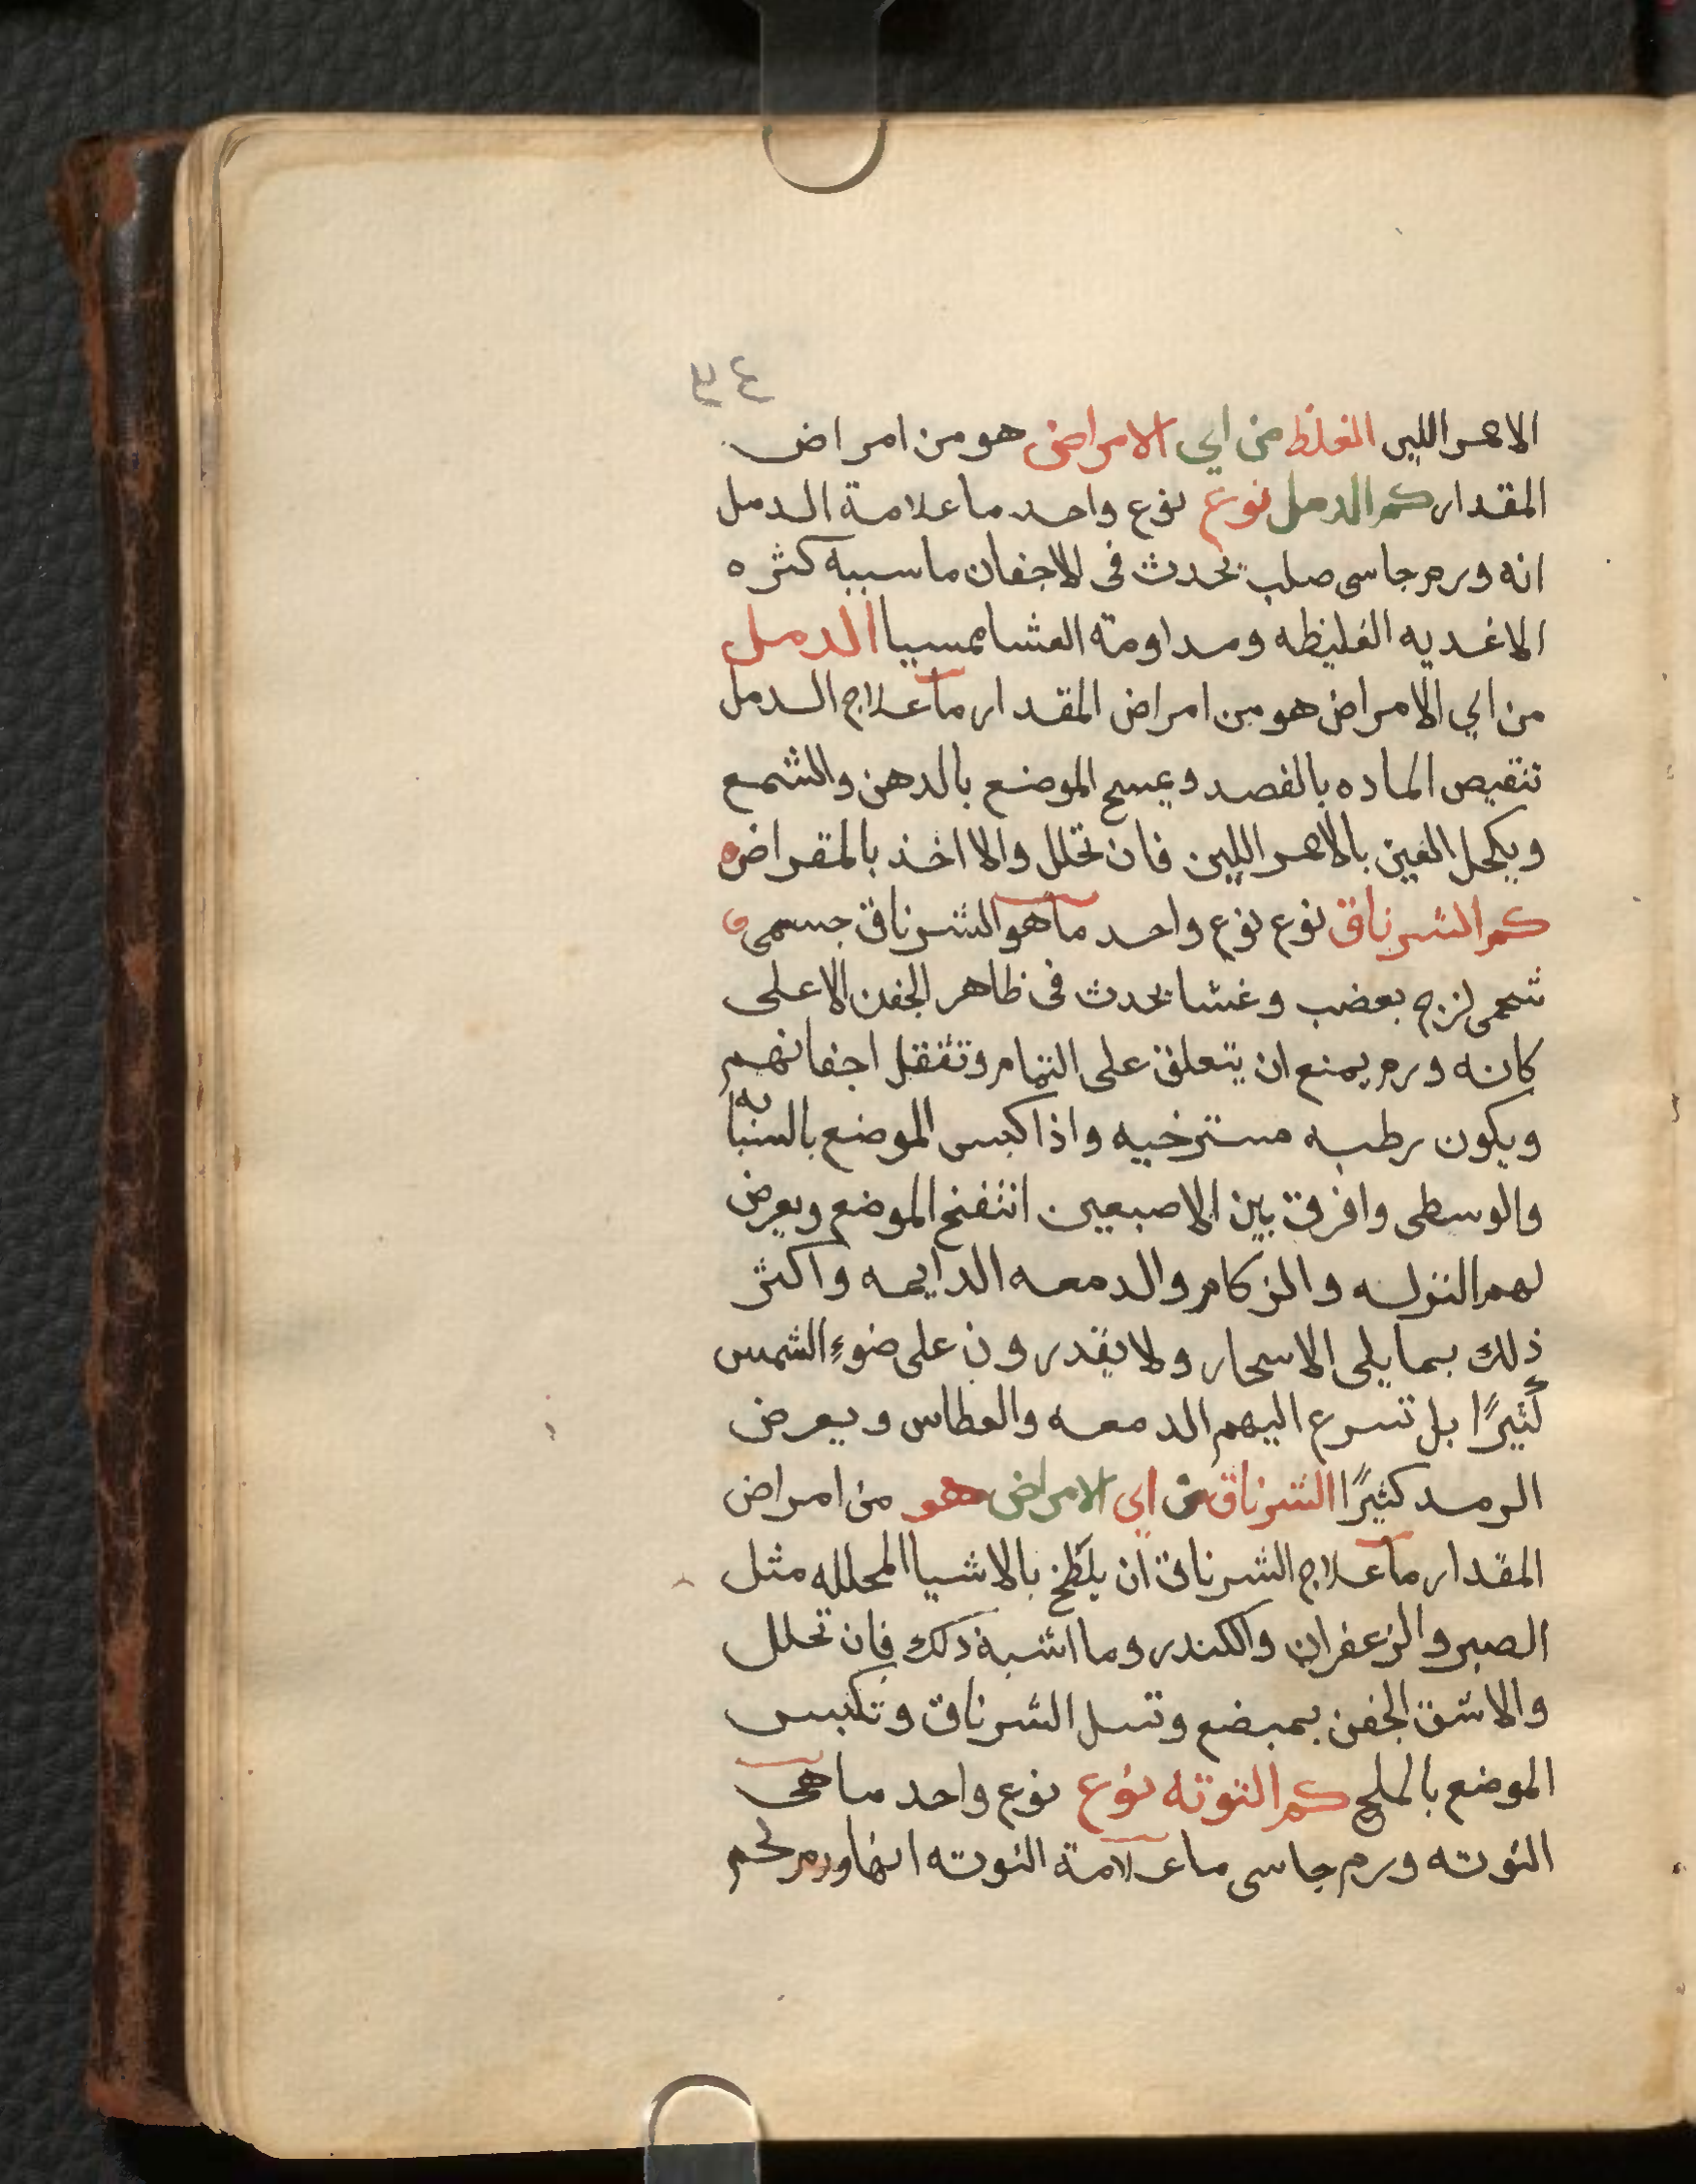 الاحمر اللين الغلظ من اي الامراض هو من امراض
المقدار كم الدمل نوع نوع واحد ما علامة الدمل
انه ورم جاسى صلب يحدث فى الاجفان ما سببه كثره
الاغديه الغليظه ومداومة العشا ممسيا الدمل
من اي الامراض هو من امراض المقدار ما علاج الدمل
تنقيص الماده بالفصد ويمسح الموضع بالدهن والشمع
ويكحل العين بالاحمر اللين فان تحلل والا اخذ بالمقراض
كم الشرناق نوع نوع واحد ما هو الشرناق جسمى
شحمى لزج بعضب وغشا يحدث فى ظاهر الجفن الاعلى
كانه ورم يمنع ان يتعلق على التمام وتثقل اجفانهم
ويكون رطبه مسترخيه واذا كبس الموضع بالسبابه
والوسطى وافرق بين الاصبعين انتفخ الموضع ويعرض
لهم النزله والزكام والدمعه الدايمه واكثر
ذلك بما يلى الاسحار ولا يقدرون على ضوء الشمس
كثيرًا بل تسرع اليهم الدمعه والعطاس ويعرض
الرمد كثيرًا الشرناق من اي الامراض هو من امراض
المقدار ما علاج الشرناق ان يلطخ بالاشيا المحلله مثل
الصبر والزعفران والكندر وما اشبة ذلك فان تحلل
والا شق الجفن بمبضع وتسل الشرناق وتكبس
الموضع بالملح كم التوته نوع نوع واحد ما هى
التوته ورم جاسى ما علامة التوته انها ورم لحم